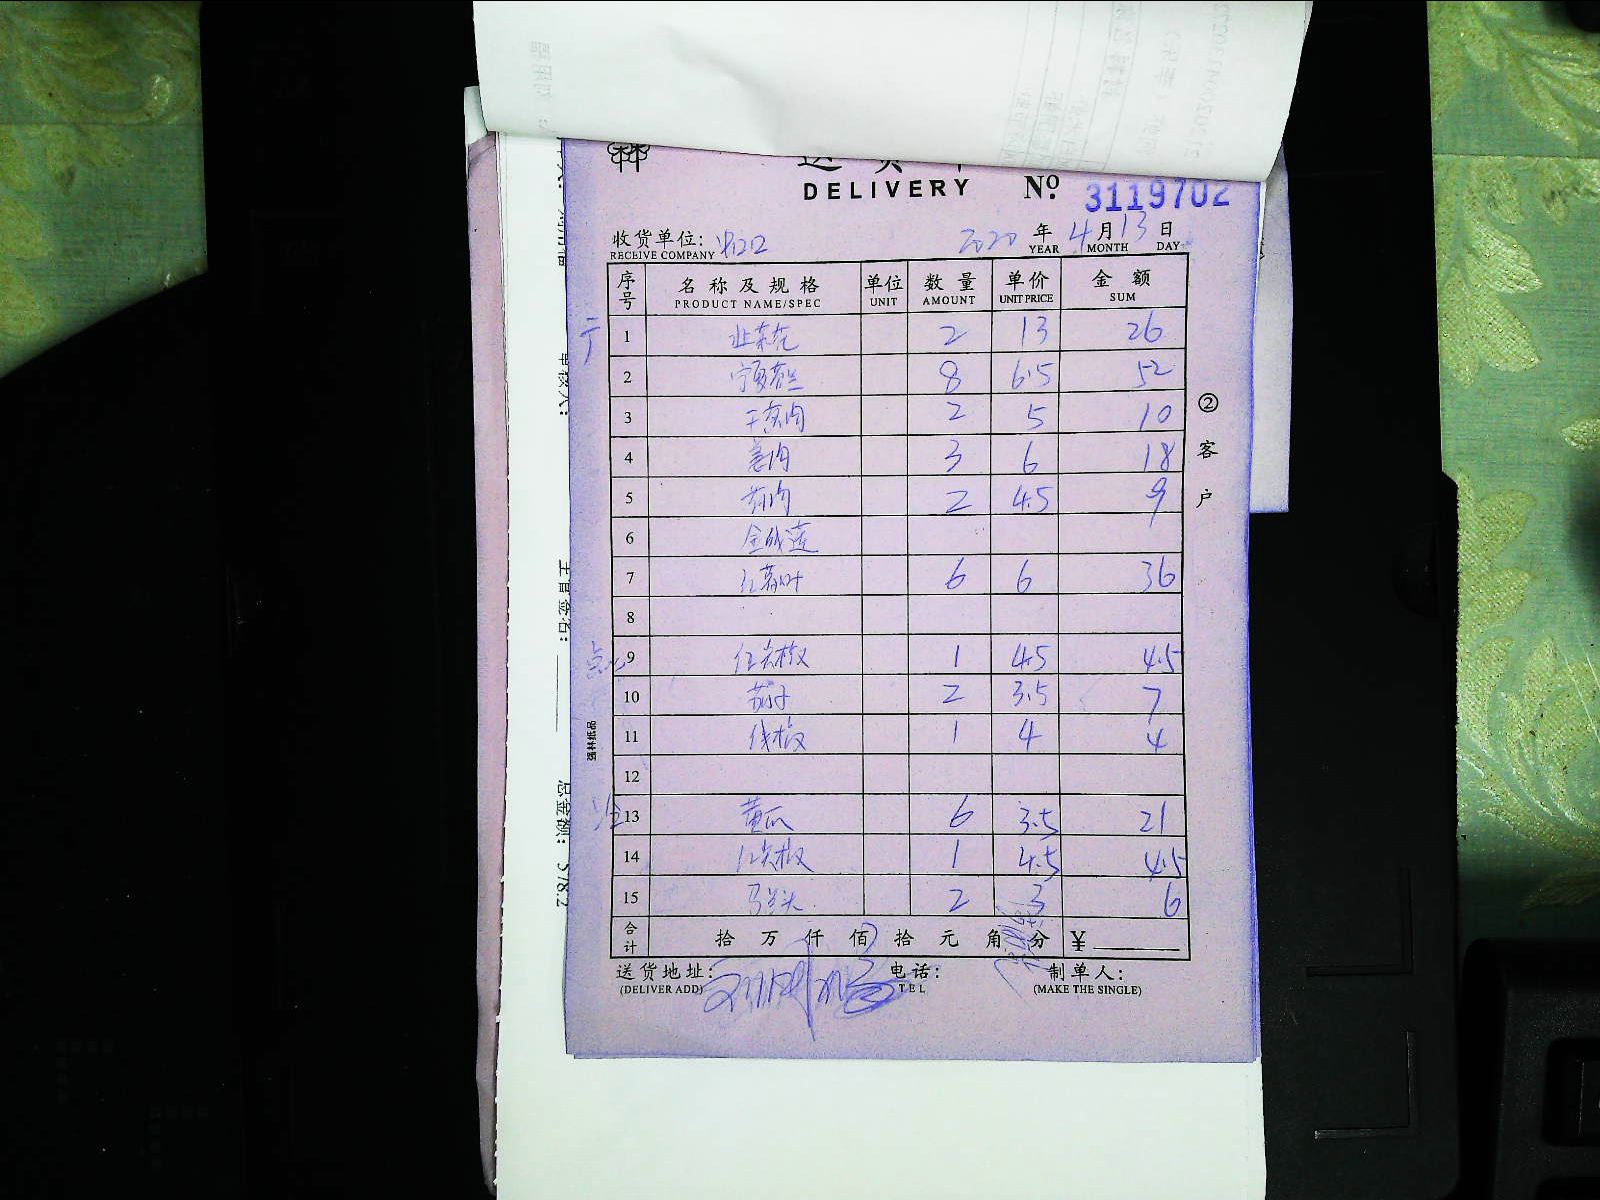 DELIVERY Nº 3119702
收货单位:
RECEIVE COMPANY
2020 年 4 月 13 日
YEAR MONTH DAY
序号 名称及规格 单位 数量 单价 金额
PRODUCT NAME/SPEC UNIT AMOUNT UNIT PRICE SUM
1 韭菜花 2 13 26
2 宁夏菜兰 8 6.5 52
3 2 5 10
4 姜肉 3 6 18
5 2 4.5 9
6
7 红薯叶 6 6 36
8
点心
9 红尖椒 1 4.5 4.5
10 茄子 2 3.5 7
11 线椒 1 4 4
12
13 黄瓜 6 3.5 21
14 红尖椒 1 4.5 4.5
15 马兰头 2 3 6
合计 拾 万 仟 佰 拾 元 角 分 ¥
送货地址: 电话: 制单人:
(DELIVER ADD) TEL (MAKE THE SINGLE)
②客户
强林纸品
主管签名:
总金额: 578.2